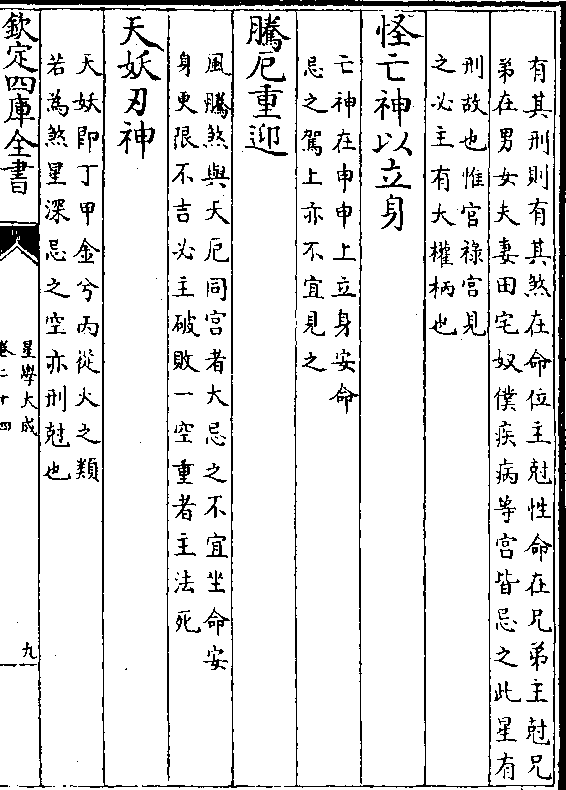 有其刑則有其煞在命位主尅性命在兄弟主尅兄
弟在男女夫妻田宅奴僕疾病等宫皆忌之此星有
刑故也惟官禄宫見
之必主有大權柄也
怪亡神以立身
亡神在申申上立身安命
忌之駕上亦不宜見之
騰厄重迎
風騰煞與天厄同宫者大忌之不宜坐命安
身更限不吉必主破敗一空重者主法死
天妖刃神
天妖即丁甲金兮丙從火之類
若為煞星深忌之空亦刑尅也
欽定四庫全書
星學大成
卷二十四
九